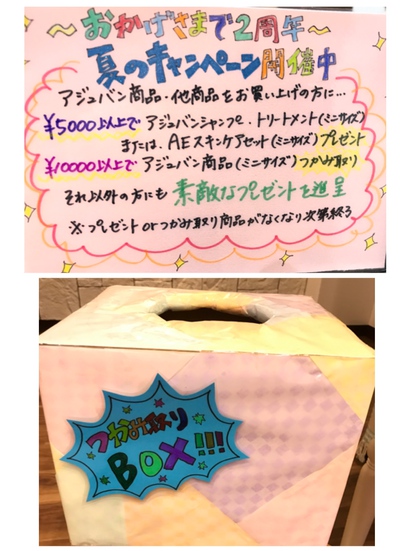 ～おかげさまで2周年～
夏のキャンペーン開催中
アジュバン商品・他商品をお買い上げの方に…
¥5000以上で アジュバンシャンプー・トリートメント(ミニサイズ)
または、AEスキンケアセット(ミニサイズ)プレゼント
¥10000以上で アジュバン商品(ミニサイズ)つかみ取り
それ以外の方にも 素敵なプレゼントを進呈
※プレゼントorつかみ取り商品がなくなり次第終了
つかみ取り
BOX!!!